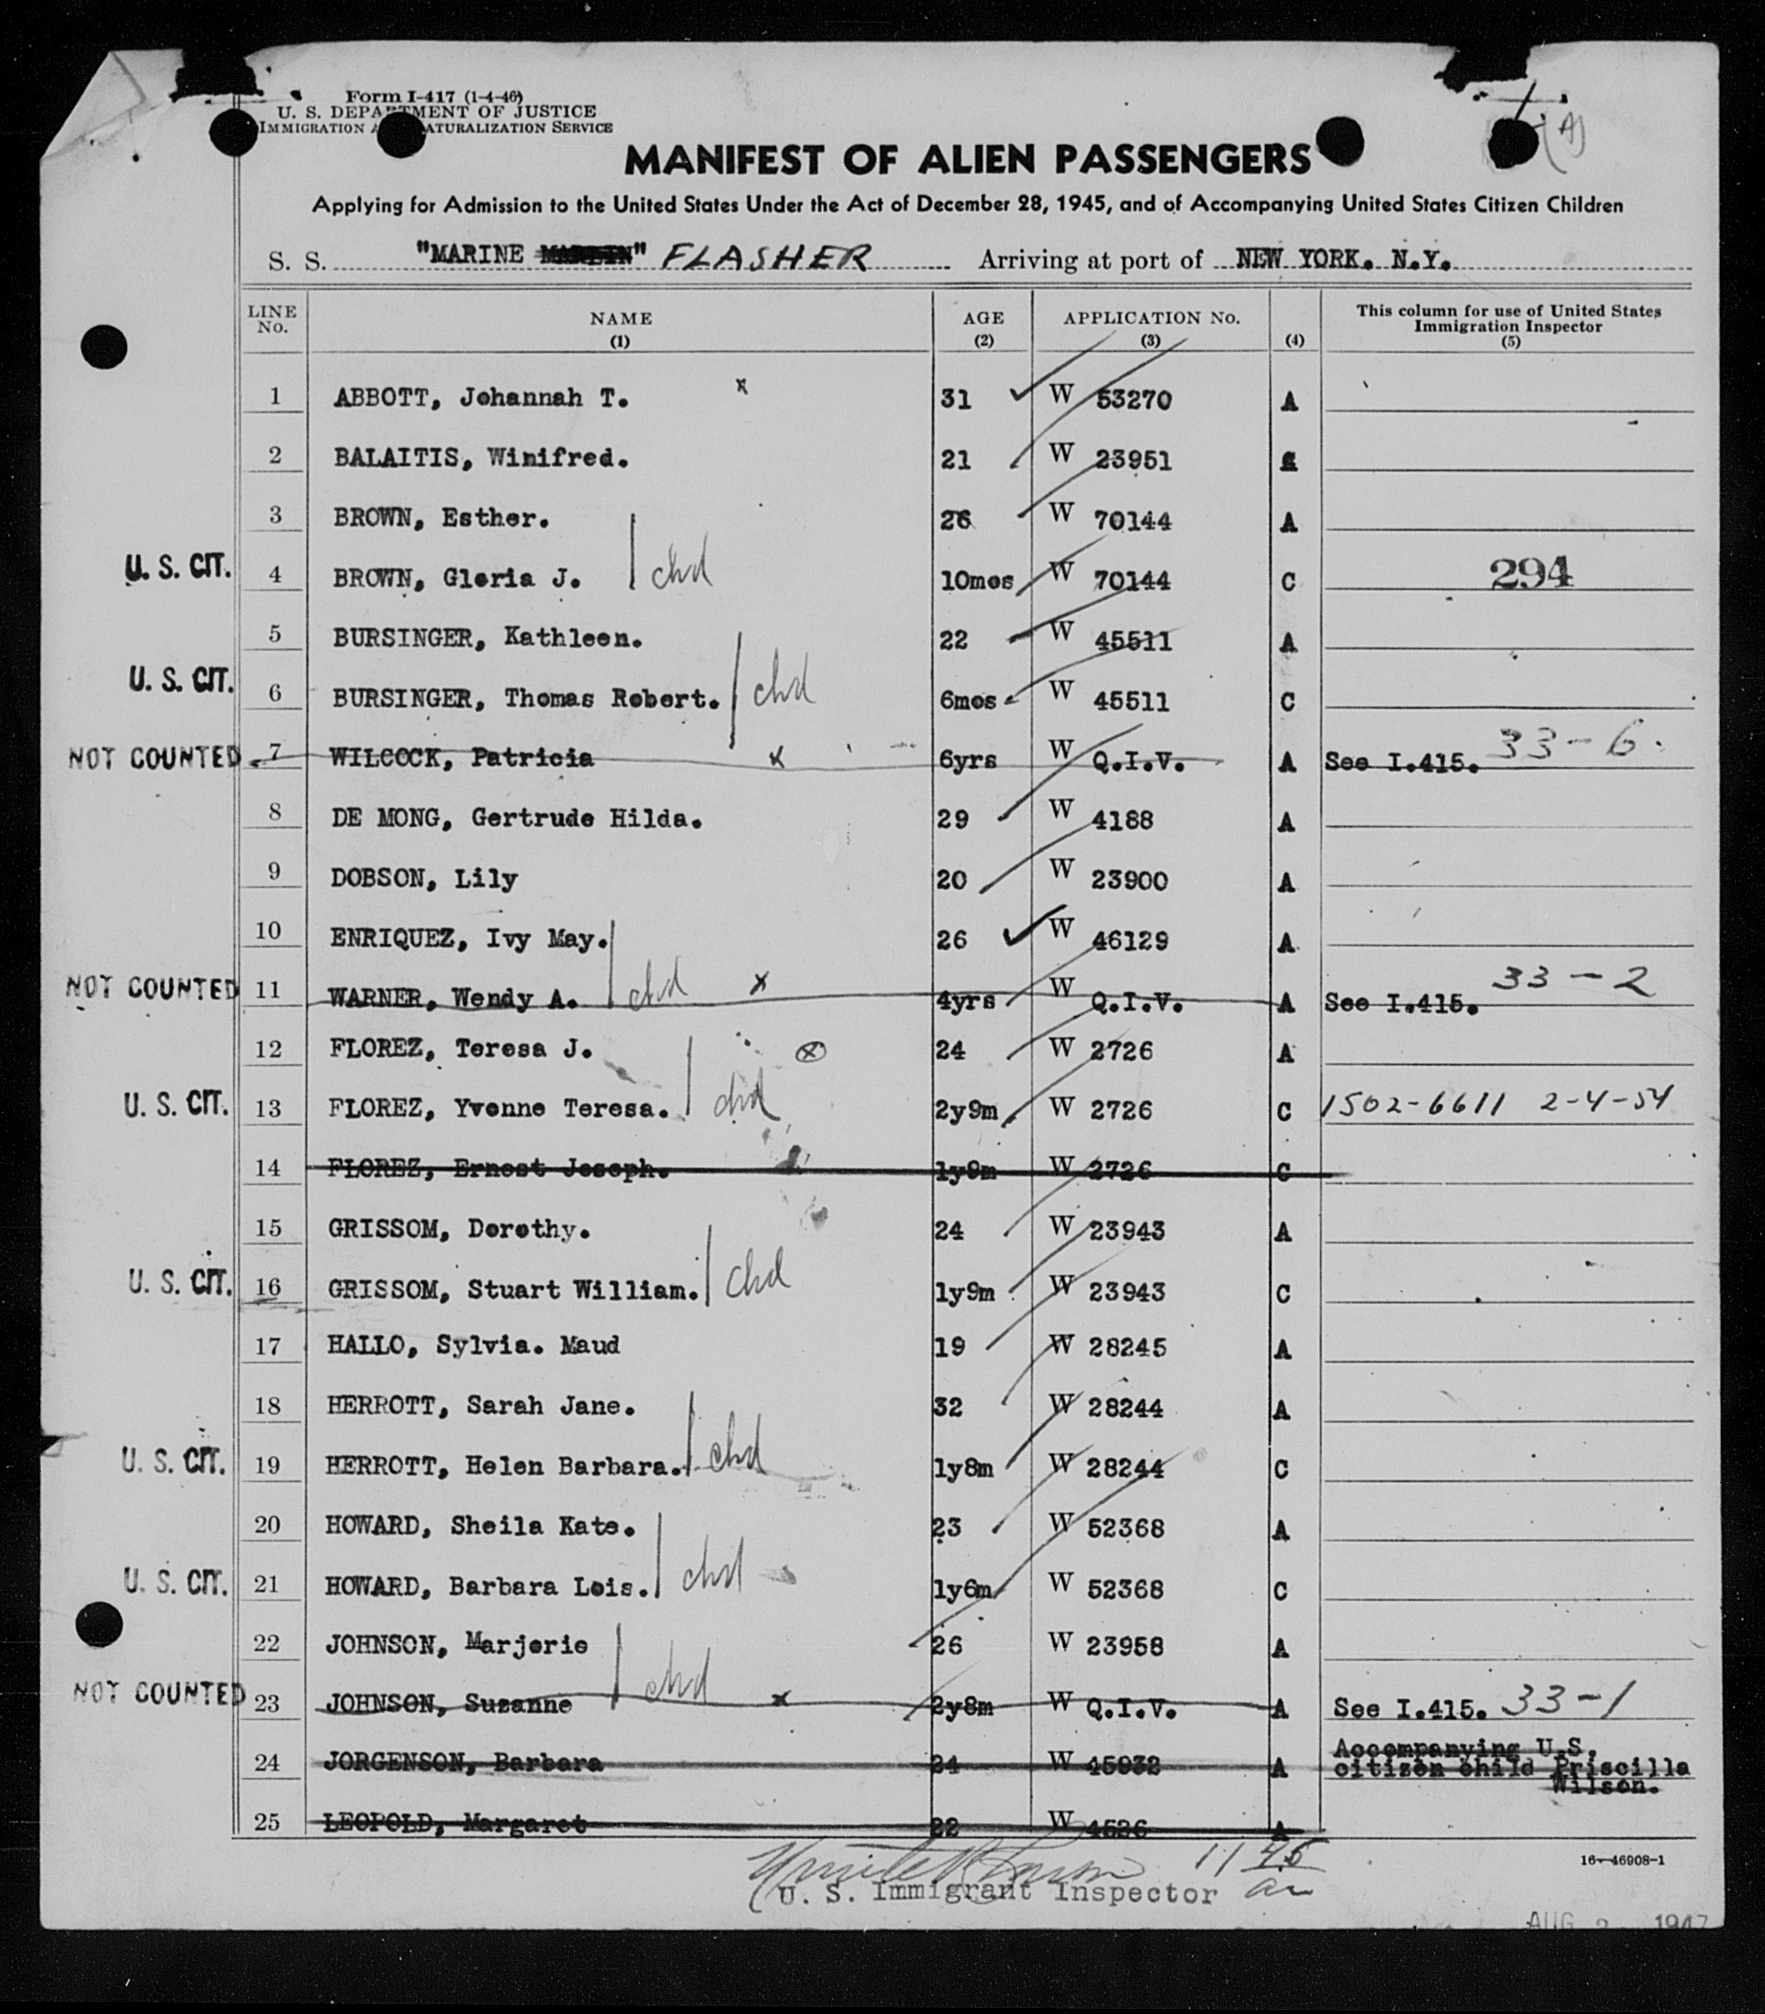 Form I-417 (1-4-46)
U. S. DEPARTMENT OF JUSTICE
IMMIGRATION NATURALIZATION SERVICE
(A)
MANIFEST OF ALIEN PASSENGERS
Applying for Admission to the United States Under the Act of December 28, 1945, and of Accompanying United States Citizen Children
S. S. "MARINE MARLIN" FLASHER Arriving at port of NEW YORK. N.Y.
LINE No. NAME (1) AGE (2) APPLICATION No. (3) (4) This column for use of United States Immigration Inspector (5)
1 ABBOTT, Johannah T. x 31 W 53270 A
2 BALAITIS, Winifred. 21 W 23951 A
3 BROWN, Esther. 26 W 70144 A
U. S. CIT. 4 BROWN, Gloria J. chd 10mos W 70144 C 294
5 BURSINGER, Kathleen. 22 W 45511 A
U. S. CIT. 6 BURSINGER, Thomas Robert. chd 6mos W 45511 C
NOT COUNTED 7 WILCOCK, Patricia x 6yrs W Q.I.V. A See I.415. 33-6.
8 DE MONG, Gertrude Hilda. 29 W 4188 A
9 DOBSON, Lily 20 W 23900 A
10 ENRIQUEZ, Ivy May. 26 W 46129 A
NOT COUNTED 11 WARNER, Wendy A. chd x 4yrs W Q.I.V. A See I.415. 33-2
12 FLOREZ, Teresa J. x 24 W 2726 A
U. S. CIT. 13 FLOREZ, Yvonne Teresa. chd 2y9m W 2726 C 1502-6611 2-4-54
14 FLOREZ, Ernest Joseph. 1y9m W 2726 C
15 GRISSOM, Dorothy. 24 W 23943 A
U. S. CIT. 16 GRISSOM, Stuart William. chd 1y9m W 23943 C
17 HALLO, Sylvia. Maud 19 W 28245 A
18 HERROTT, Sarah Jane. 32 W 28244 A
U. S. CIT. 19 HERROTT, Helen Barbara. chd 1y8m W 28244 C
20 HOWARD, Sheila Kate. 23 W 52368 A
U. S. CIT. 21 HOWARD, Barbara Lois. chd 1y6m W 52368 C
22 JOHNSON, Marjorie 26 W 23958 A
NOT COUNTED 23 JOHNSON, Suzanne chd x 2y8m W Q.I.V. A See I.415. 33-1
24 JORGENSON, Barbara 24 W 45932 A Accompanying U.S. citizen child Priscilla Wilson.
25 LEOPOLD, Margaret 22 W 4536 A
11 45
16-46908-1
U. S. Immigrant Inspector
AUG 1947